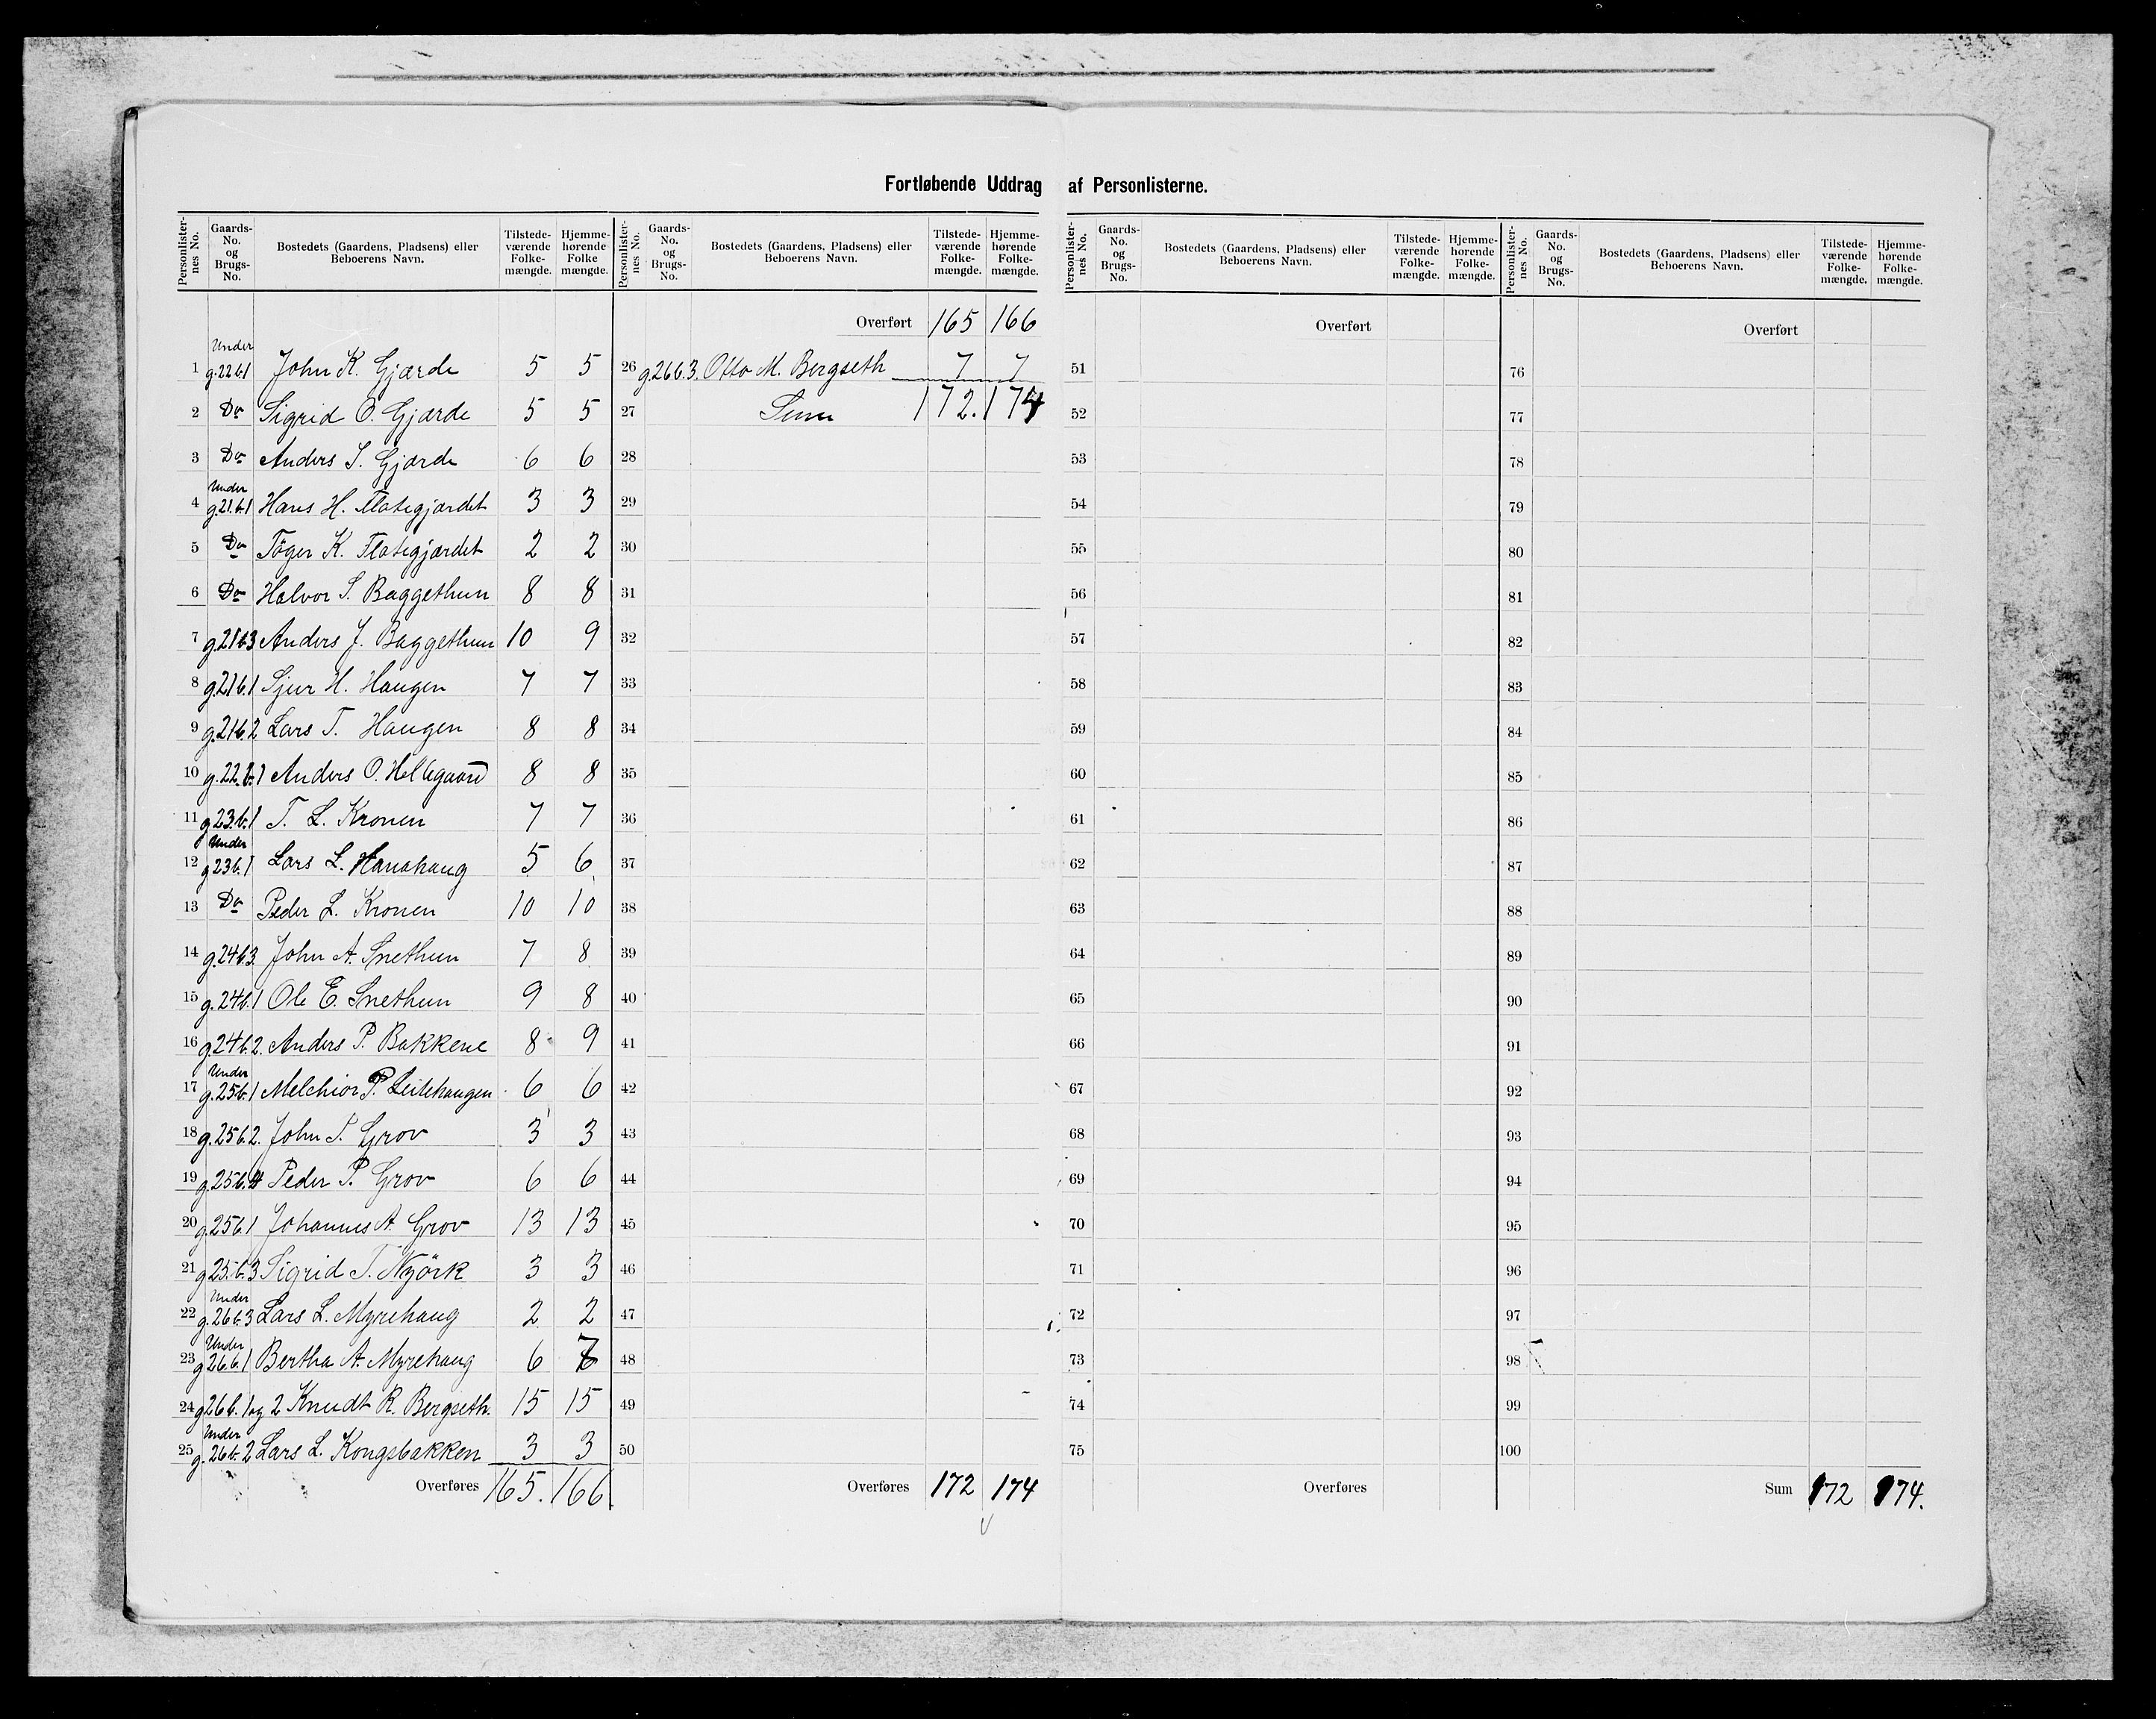 Fortløbende Uddrag af Personlisterne.
Personlister-nes No. | Gaards-No. og Brugs-No. | Bostedets (Gaardens, Pladsens) eller Beboerens Navn. | Tilstede-værende Folke-mængde. | Hjemme-hørende Folke mængde.
Personlister-nes No. | Gaards-No. og Brugs-No. | Bostedets (Gaardens, Pladsens) eller Beboerens Navn. | Tilstede-værende Folke-mængde. | Hjemme-hørende Folke-mængde.
Personlister-nes No. | Gaards-No. og Brugs-No. | Bostedets (Gaardens, Pladsens) eller Beboerens Navn. | Tilstede-værende Folke-mængde. | Hjemme-hørende Folke-mængde.
Personlister-nes No. | Gaards-No. og Brugs-No. | Bostedets (Gaardens, Pladsens) eller Beboerens Navn. | Tilstede-værende Folke-mængde. | Hjemme-hørende Folke-mængde.
1 Under g.22 b.1 John K. Gjærde 5 5
2 Do Sigrid O. Gjærde 5 5
3 Do Anders I. Gjærde 6 6
4 Under g.21.b.1 Hans H. Flategjærdet 3 3
5 Do Töger K. Flategjærdet 2 2
6 Do Halvor S. Baggethun 8 8
7 g.21 b.3 Anders J. Baggethun 10 9
8 g.21 b.1 Sjur H. Haugen 7 7
9 g.21 b.2 Lars T. Haugen 8 8
10 g.22.b.1 Anders O. Hellegaard 8 8
11 g.23.b.1 T. L. Kronen 7 7
12 Under g.23 b.1 Lars L. Hanahaug 5 6
13 Do Peder L. Kronen 10 10
14 g.24 b.3. John A. Snethun 7 8
15 g.24 b.1 Ole E. Snethun 9 8
16 g.24 b.2. Anders P. Bakkene 8 9
17 Under g.25 b.1 Melchior P. Leitehaugen 6 6
18 g.25 b.2. John T. Grov 3 3
19 g.25 b.4 Peder P. Grov 6 6
20 g.25 b.1 Johannes A. Grov 13 13
21 g.25.b.3 Sigrid T. Nyörk 3 3
22 Under g.26 b.3 Lars L. Myrehaug 2 2
23 Under g.26.b.1 Bertha A. Myrehaug 6 7
24 g.26 b.1 og 2 Knudt R. Bergseth. 15 15
25 Under g.26 b.2 Lars L. Kongsbakken 3 3
Overføres 165. 166.
Overført 165 166
26 g.26 b.3. Otto M. Bergseth 7 7
27 Sum 172. 174
28
29
30
31
32
33
34
35
36
37
38
39
40
41
42
43
44
45
46
47
48
49
50
Overføres 172 174
Overført
51
52
53
54
55
56
57
58
59
60
61
62
63
64
65
66
67
68
69
70
71
72
73
74
75
Overføres
Overført
76
77
78
79
80
81
82
83
84
85
86
87
88
89
90
91
92
93
94
95
96
97
98
99
100
Sum 172 174.